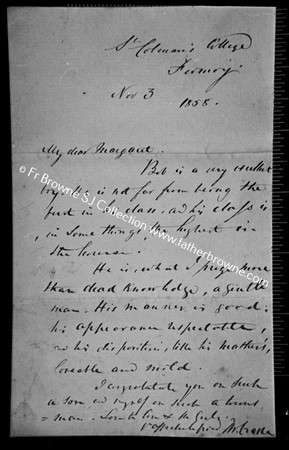 St Colman's College
Fermoy.
Nov 3
1858.
My dear Margaret.
Bob is a very excellent
boy. He is not far from being the
first in his class, and his class is
, in some things, the highest in
the house.
He is, what I prize more
than dead knowledge, a gentle
man. His manner is good;
his appearance respectable,
and his disposition, like his mother's,
loveable and mild.
I congratulate you on such
a son and myself on such a towns
=man. Love to
© Fr Browne S J Collection www.davisonphoto.com